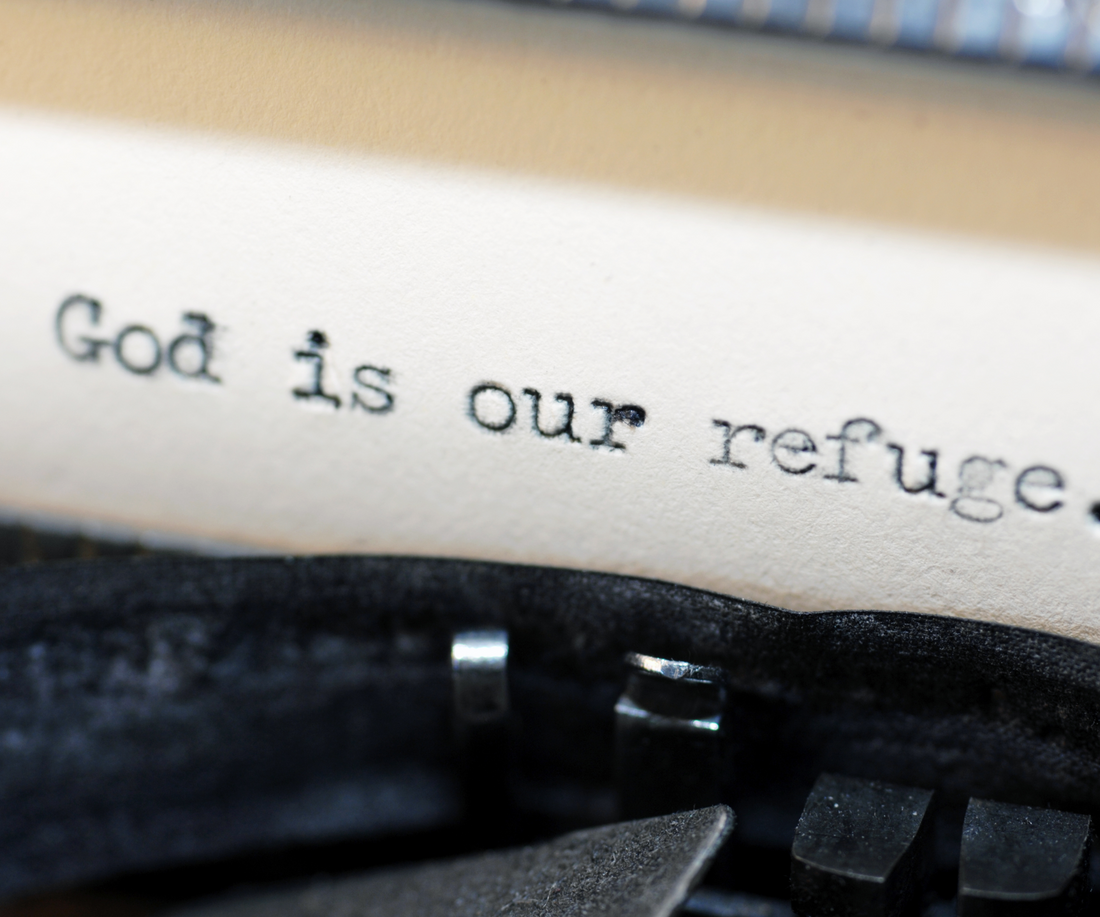 God is our refuge.